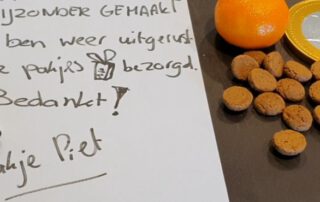 IJZONDER GEMAAKT
ben weer uitgerust
pakjes bezorgd.
Bedankt!
kje Piet